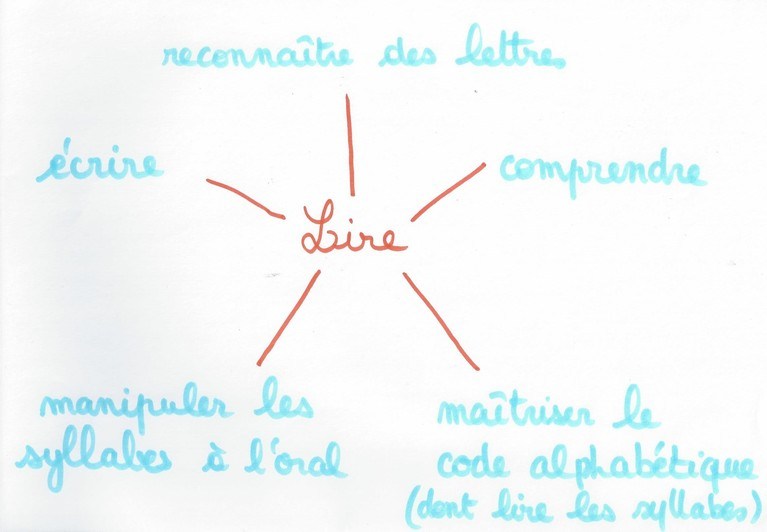 reconnaître des lettres
écrire
comprendre
Lire
manipuler les
syllabes à l'oral
maîtriser le
code alphabétique
(dont lire les syllabes)